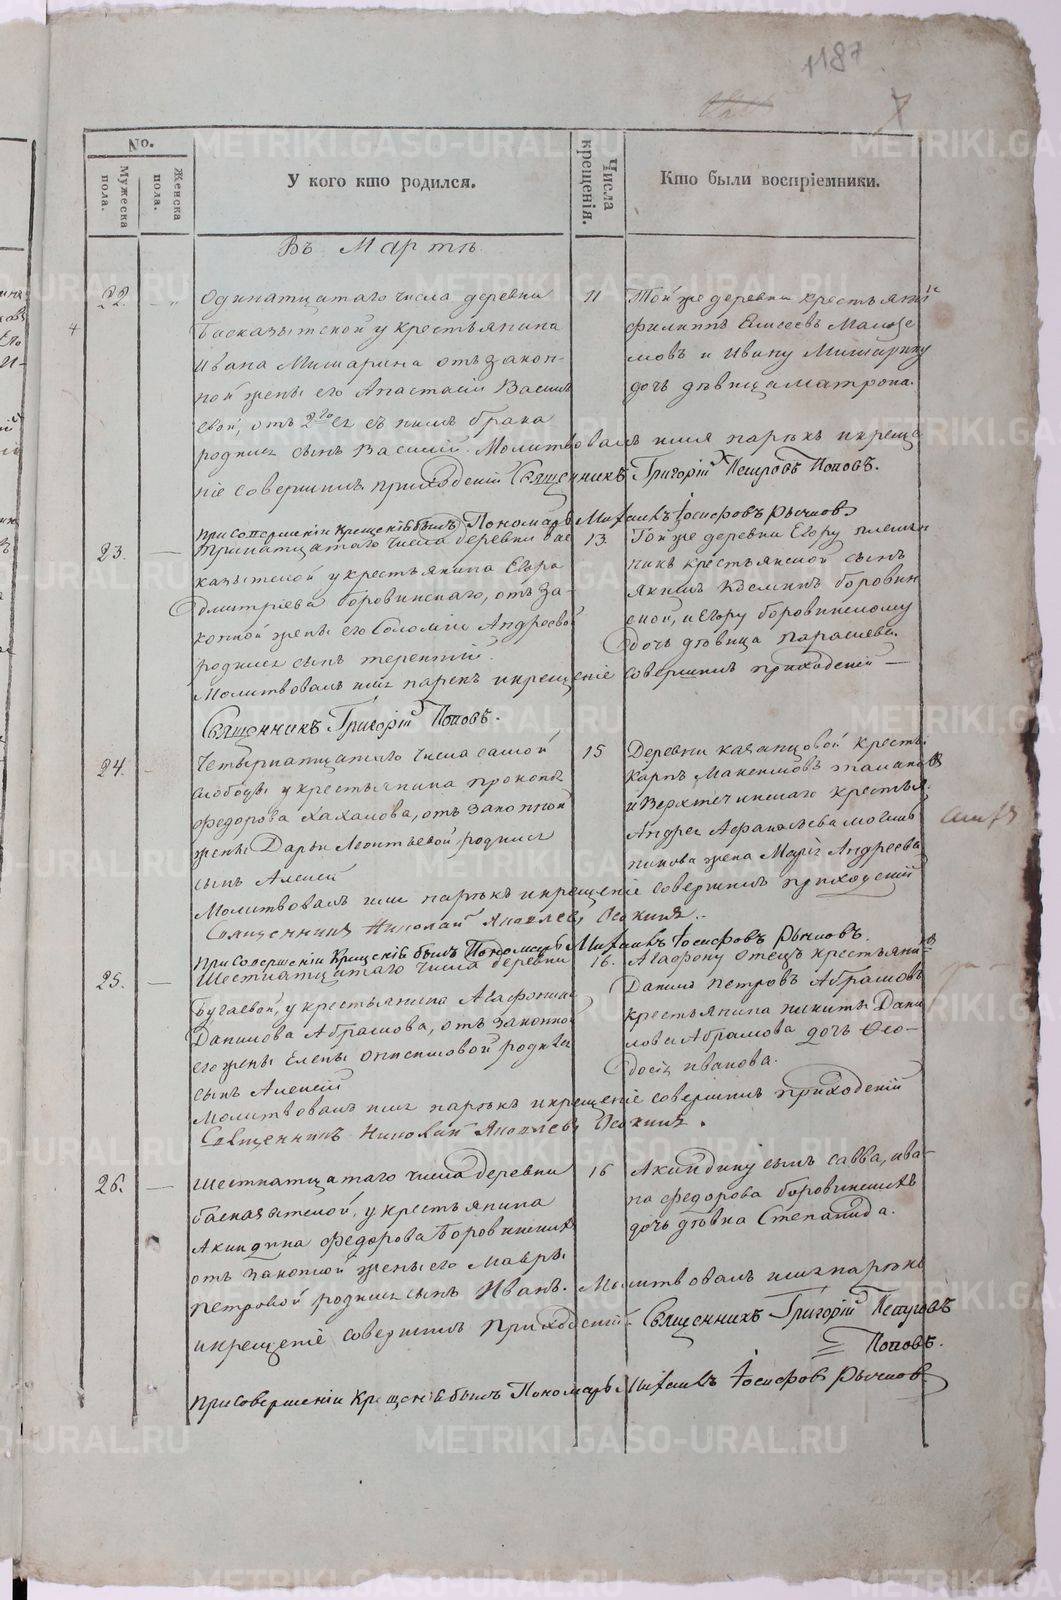 1187
7
No.
Мужеска пола.
Женска пола.
У кого кто родился.
Числа крещенія.
Кто были воспріемники.
Въ Мартѣ.
22.
Одинатцатаго числа деревни
Басказытской у крестьянина
Ивана Мишарина отъ закон-
ной жены его Анастасіи Василь
евой, отъ 2го съ нимъ брака
родился сынъ Василий. Молитвовалъ имя нарѣкъ и креще
ніе совершилъ приходскій Священникъ Григорій Петровъ Поповъ.
11
Той же деревни крестьянинъ
Филиппъ Елисеевъ
и Ивану Мишарину
дочь дѣвица Матрона.
При совершеніи Крещенія былъ Пономарь Михаилъ Іосифовъ Рычковъ
23.
Тринатцатаго числа деревни Бас
казытской у крестьянина Егора
Дмитріева Боровинскаго, отъ за-
конной жены его Соломіи Андреевой
родился сынъ Терентий.
Молитвовалъ имя нарекъ и крещеніе совершилъ приходскій
Священникъ Григорій Поповъ.
13.
Той же деревни Егору племян
никъ крестьянской сынъ
Якимъ Боровин
ской, и Егору Боровинскому
дочь дѣвица Параскева.
24.
Четырнатцатаго числа самой
слободы у крестьянина Прокопья
Федорова Хахалова, отъ законной
жены Дарьи Леонтьевой родился
сынъ Алексей
Молитвовалъ имя нарѣкъ и крещеніе совершилъ приходскій
Священникъ Николай Яковлевъ Осокинъ.
15
Деревни Казанцовой кресть.
Карпъ Максимовъ
и Верхтечинскаго крестья.
Андрея Афанасьева
жена Марія Андреева
При совершеніи Крещенія былъ Пономарь Михаилъ Іосифовъ Рычковъ.
25.
Шестнатцатаго числа деревни
Бугаевой, у крестьянина Агафона
Данилова Абрамова, отъ законной
его жены Елены Онисимовой родился
сынъ Алексей
Молитвовалъ имя нарѣкъ и крещеніе совершилъ приходскій
Священникъ Николай Яковлевъ Осокинъ.
16.
Агафону отецъ крестьянинъ
Данилъ Петровъ Абрамовъ
крестьянина Никиты Дани
лова Абрамова дочь Фео-
досія Иванова.
26.
Шестнатцатаго числа деревни
Басказытской, у крестьянина
Акиндина Федорова Боровинскихъ
отъ законной жены его Мавры
Петровой родился сынъ Иванъ. Молитвовалъ имя нарѣкъ
и крещеніе совершилъ Приходскій Священникъ Григорій Петровъ
Поповъ.
16
Акиндину сынъ Савва, Ива-
на Федорова Боровинскихъ
дочь дѣвка Степанида.
При совершеніи Крещенія былъ Пономарь Михаилъ Іосифовъ Рычковъ
METRIKI.GASO-URAL.RU